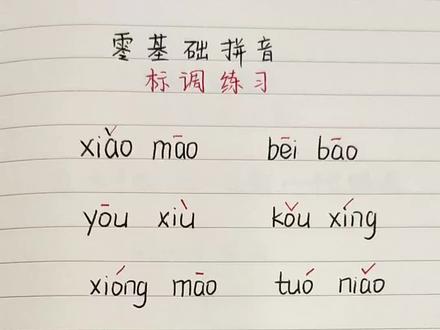 零基础拼音
标调练习
xiǎo māo bēi bāo
yōu xiù kǒu xíng
xióng māo tuó niǎo